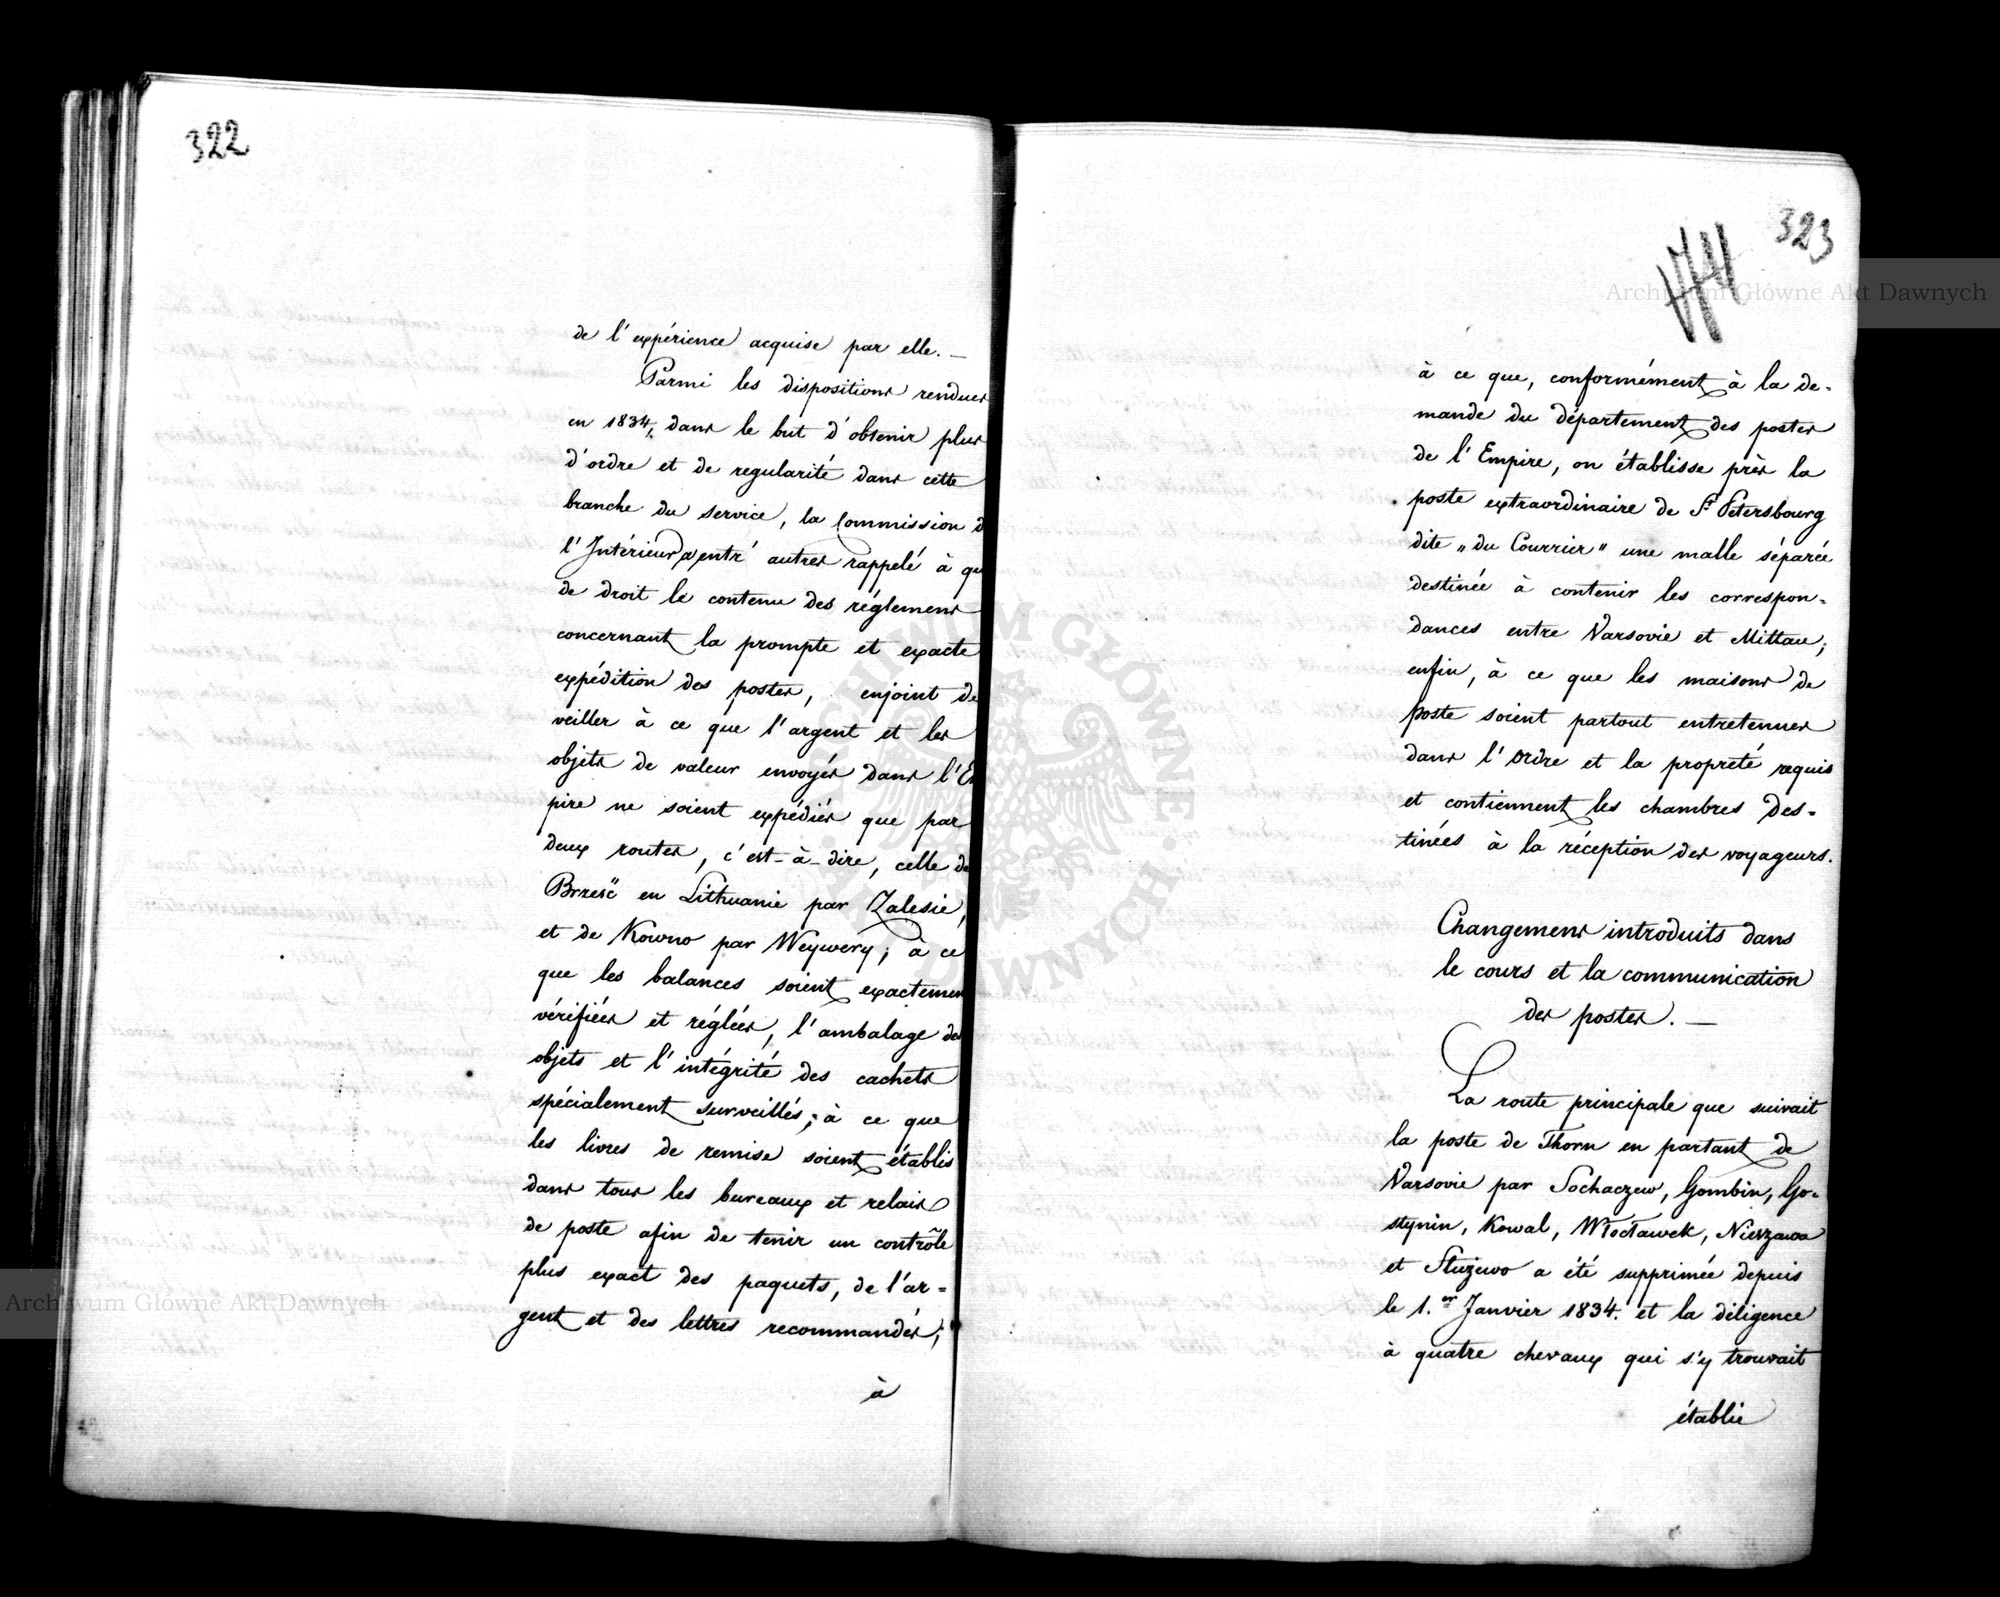 322
de l'expérience acquise par elle. —
Parmi les dispositions rendues
en 1834, dans le but d'obtenir plus
d'ordre et de regularité dans cette
branche du service, la Commission d
l'Intérieur a entr' autres rappelé à qu
de droit le contenu des réglemens
concernant la prompte et exacte
expédition des postes, enjoint de
veiller à ce que l'argent et les
objets de valeur envoyés dans l'E
pire ne soient expédiés que par
deux routes, c'est-à-dire, celle de
Brześć en Lithuanie par Zalesie,
et de Kowno par Weywery; à ce
que les balances soient exactemen
vérifiées et réglées, l'ambalage des
objets et l'intégrité des cachets
spécialement surveillés; à ce que
les livres de remise soient établis
dans tous les bureaux et relais
de poste afin de tenir un contrôle
plus exact des paquets, de l'ar-
gent et des lettres recommandés;
à
323
à ce que, conformément à la de-
mande du département des postes
de l'Empire, on établisse près la
poste extraordinaire de St Petersbourg
dite „du Courrier" une malle séparée
destinée à contenir les correspon-
dances entre Varsovie et Mittau;
enfin, à ce que les maisons de
poste soient partout entretenues
dans l'ordre et la propreté requis
et contiennent les chambres des-
tinées à la réception des voyageurs.
Changemens introduits dans
le cours et la communication
des postes. —
La route principale que suivait
la poste de Thorn en partant de
Varsovie par Sochaczew, Gombin, Go-
stynin, Kowal, Włocławek, Nieszawa
et Służewo a été supprimée depuis
le 1.er Janvier 1834. et la diligence
à quatre chevaux qui s'y trouvait
établie
Archiwum Główne Akt Dawnych
Archiwum Główne Akt Dawnych
ARCHIWUM GŁÓWNE AKT DAWNYCH